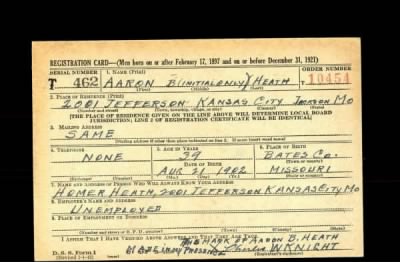 REGISTRATION CARD—(Men born on or after February 17, 1897 and on or before December 31, 1921)
SERIAL NUMBER 1. NAME (Print) ORDER NUMBER
T 462 AARON B (INITIAL ONLY) HEATH 10454
(First) (Middle) (Last)
2. PLACE OF RESIDENCE (Print)
2001 JEFFERSON KANSAS CITY JACKSON MO
(Number and street) (Town, township, village, or city) (County) (State)
[THE PLACE OF RESIDENCE GIVEN ON THE LINE ABOVE WILL DETERMINE LOCAL BOARD
JURISDICTION; LINE 2 OF REGISTRATION CERTIFICATE WILL BE IDENTICAL]
3. MAILING ADDRESS
SAME
[Mailing address if other than place indicated on line 2. If same insert word same]
4. TELEPHONE 5. AGE IN YEARS 6. PLACE OF BIRTH
NONE 39 BATES CO.
DATE OF BIRTH (Town or county)
AUG 21, 1902 MISSOURI
(Exchange) (Number) (Mo.) (Day) (Yr.) (State or country)
7. NAME AND ADDRESS OF PERSON WHO WILL ALWAYS KNOW YOUR ADDRESS
HOMER HEATH, 2001 JEFFERSON KANSAS CITY MO
8. EMPLOYER'S NAME AND ADDRESS
UNEMPLOYED
9. PLACE OF EMPLOYMENT OR BUSINESS
(Number and street or R. F. D. number) (Town) (County) (State)
I AFFIRM THAT I HAVE VERIFIED ABOVE ANSWERS AND THAT THEY ARE TRUE.
THE MARK OF AARON B. HEATH
D. S. S. Form 1 IN MY PRESENCE W KNIGHT